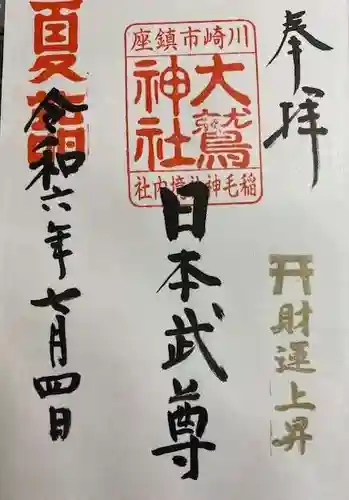 奉拝
财運上昇
川崎市鎮座
大鷲
神社
稲毛神社境内社
日本武尊
夏詣
令和六年七月四日